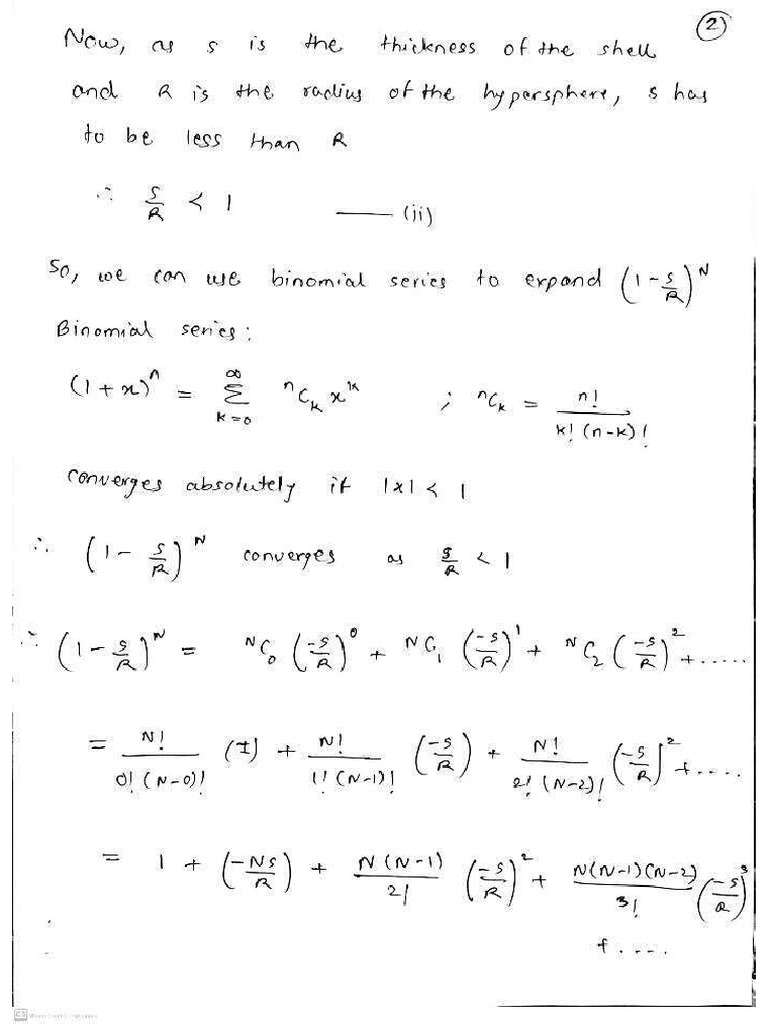 ②
Now, as s is the thickness of the shell
and R is the radius of the hypersphere, s has
to be less than R
∴ s/R < 1 —— (ii)
So, we can use binomial series to expand (1 - s/R)^N
Binomial series:
(1 + x)^n = ∑_{k=0}^{∞} ^nC_k x^k ; ^nC_k = n! / k! (n-k)!
converges absolutely if |x| < 1
∴ (1 - s/R)^N converges as s/R < 1
∴ (1 - s/R)^N = ^NC_0 (-s/R)^0 + ^NC_1 (-s/R)^1 + ^NC_2 (-s/R)^2 + .....
= N! / 0! (N-0)! (1) + N! / 1! (N-1)! (-s/R) + N! / 2! (N-2)! (-s/R)^2 + ....
= 1 + (-Ns/R) + N(N-1) / 2! (-s/R)^2 + N(N-1)(N-2) / 3! (-s/R)^3
+ ....
CS